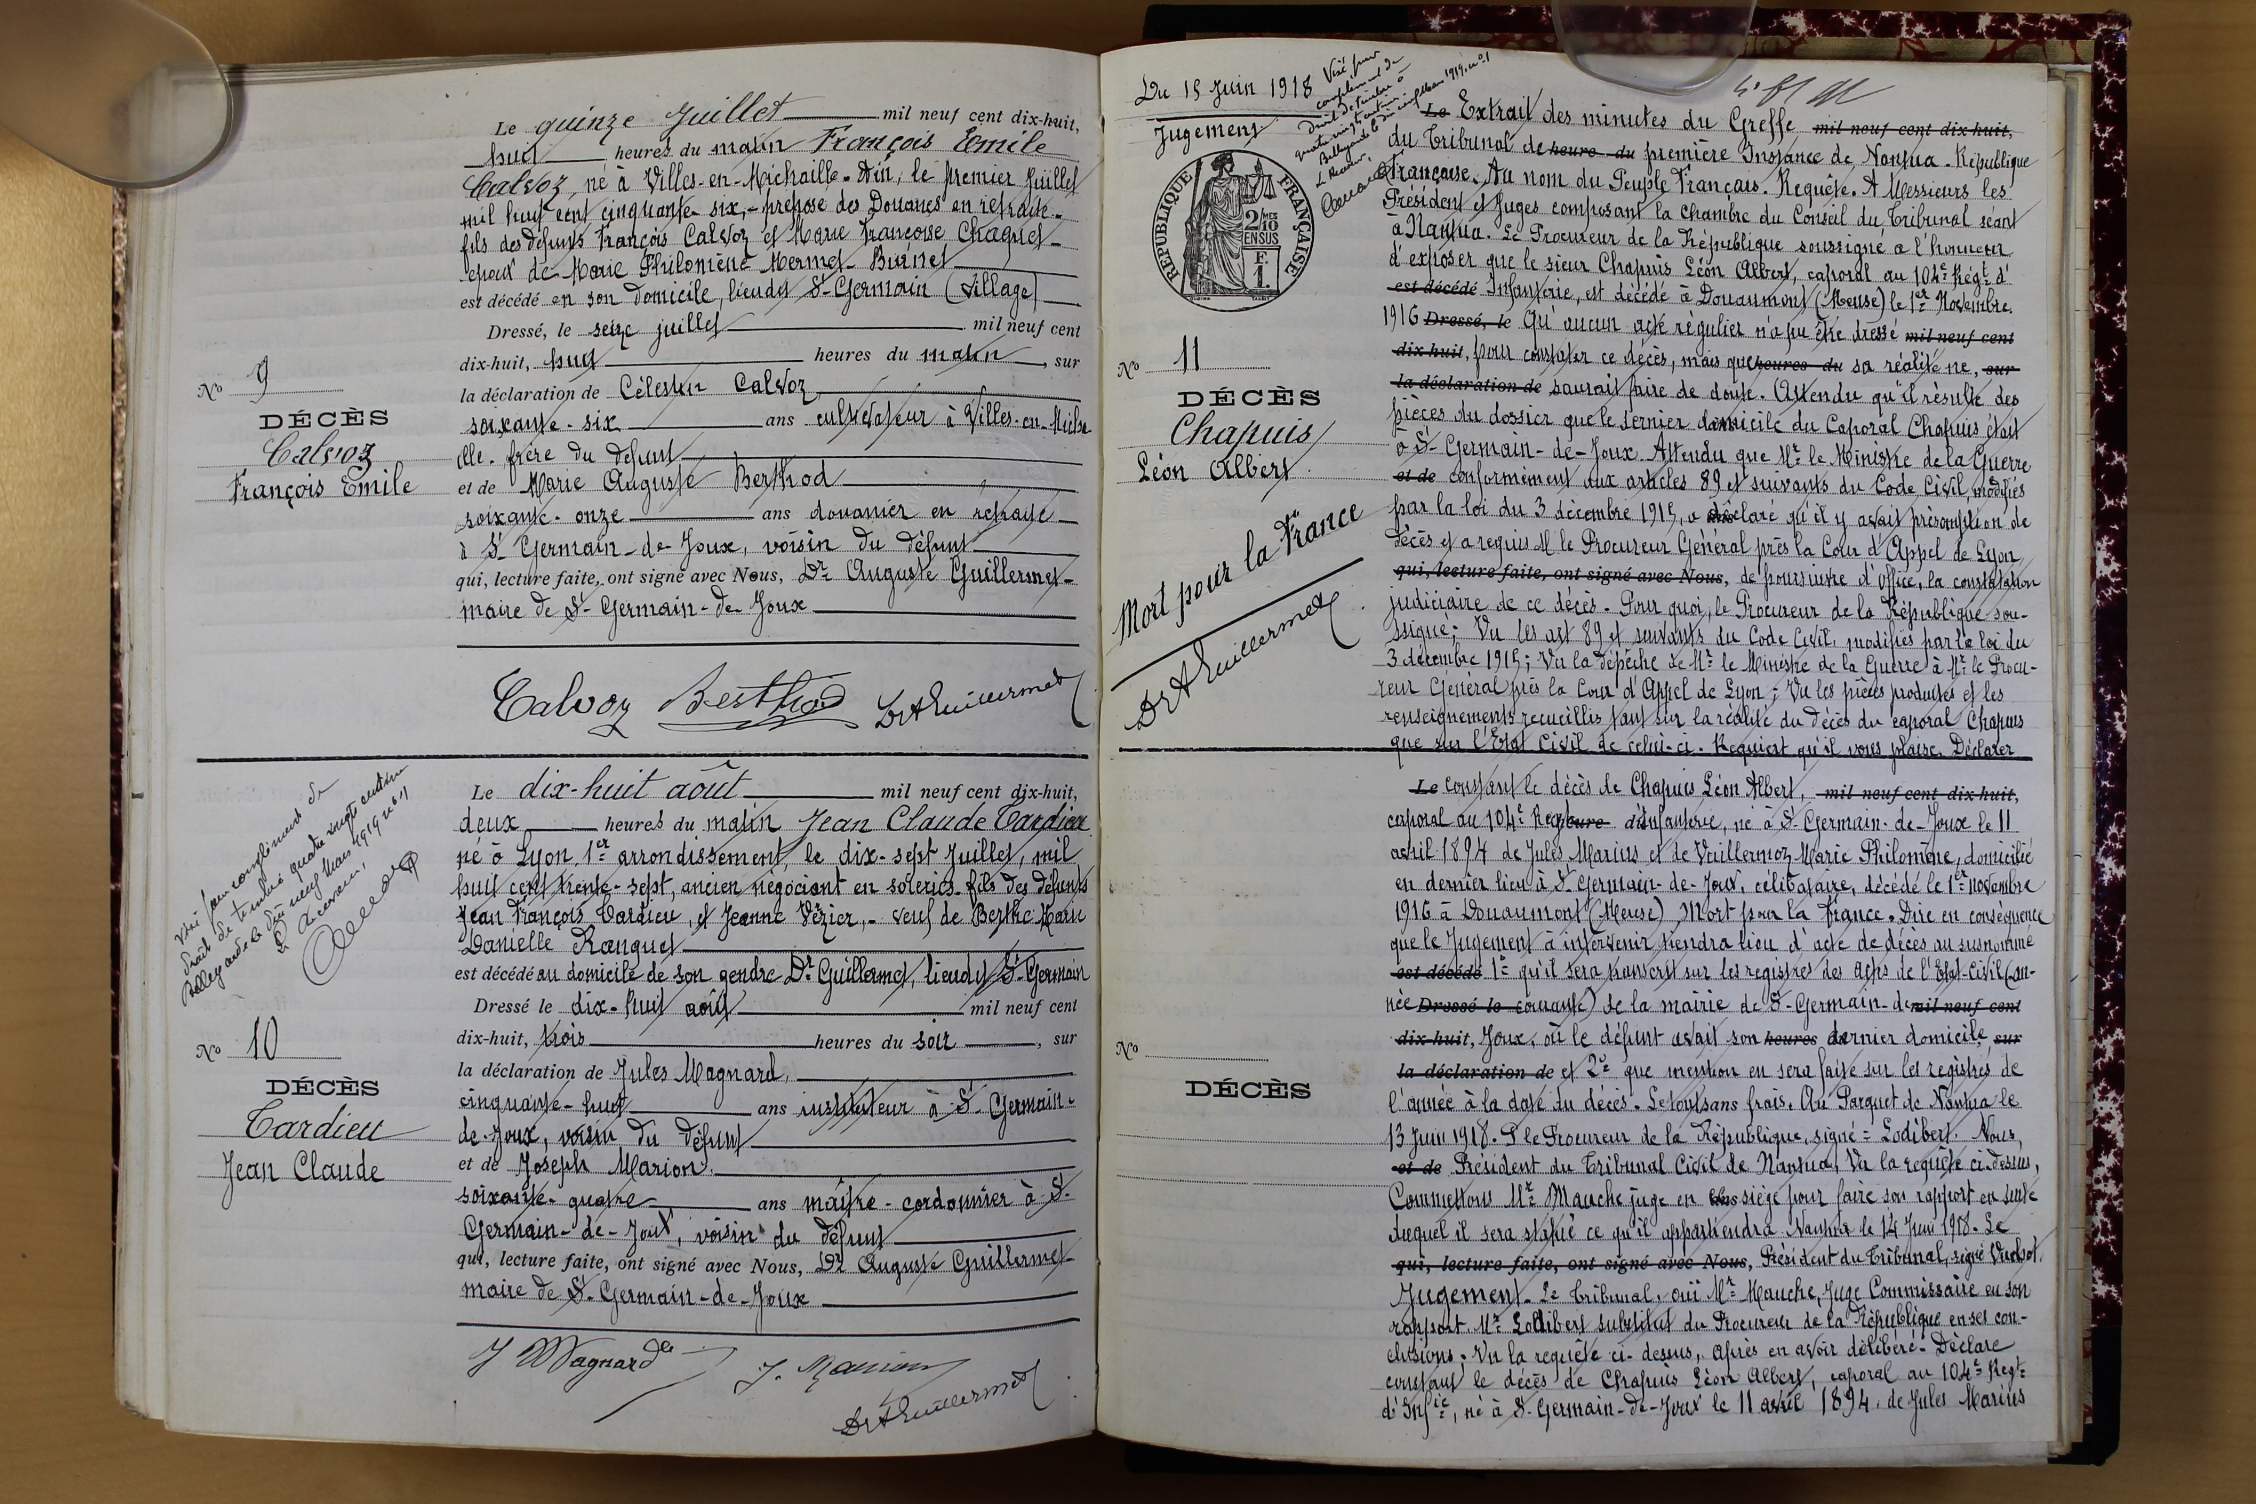 Le quinze Juillet mil neuf cent dix-huit,
huit heures du matin François Emile
Calvoz, né à Villes-en-Michaille-Ain, le premier Juillet
mil huit cent cinquante-six, - préposé des Douanes en retraite -
fils des défunts François Calvoz et Marie Françoise Chagnet -
époux de Marie Philomène Mermet-Burnet
est décédé en son domicile, lieudit St-Germain (village)
Dressé, le seize juillet mil neuf cent
dix-huit, huit heures du matin, sur
No 9
la déclaration de Célestin Calvoz
DÉCÈS
soixante-six ans cultivateur à Villes-en-Micha
Calvoz
ille. frère du défunt
François Emile
et de Marie Auguste Berthod
soixante-onze ans douanier en retraite
à St Germain-de-Joux, voisin du défunt
qui, lecture faite, ont signé avec Nous, Dr Auguste Guillermet
maire de St-Germain-de-Joux
Calvoz Berthod Dr A Guillermet
Visé pour complément de
droit de timbre quatre vingts centimes
Bellegarde le dix neuf Mars 1919 no 1
Le Receveur,
Le dix-huit août mil neuf cent dix-huit,
deux heures du matin Jean Claude Tardieu
né à Lyon, 1er arrondissement, le dix-sept Juillet, mil
huit cent trente-sept, ancien négociant en soieries. fils des défunts
Jean François Tardieu, et Jeanne Vézier, - veuf de Berthe Marie
Danielle Ranquet
est décédé au domicile de son gendre Dr Guillermet, lieudit St-Germain
Dressé le dix-huit août mil neuf cent
No 10
dix-huit, trois heures du soir, sur
DÉCÈS
la déclaration de Jules Magnard,
Tardieu
cinquante-huit ans instituteur à St Germain-
Jean Claude
de-Joux, voisin du défunt
et de Joseph Marion
soixante-quatre ans maître-cordonnier à St-
Germain-de-Joux, voisin du défunt
qui, lecture faite, ont signé avec Nous, Dr Auguste Guillermet
maire de St-Germain-de-Joux
J Magnard
J. Marion
Dr A Guillermet
Du 15 Juin 1918
Jugement
Visé pour
complément de
droit de timbre à
quatre vingts centimes
Le Receveur,
RÉPUBLIQUE FRANÇAISE
2/10 EN SUS
F. 1.
No 11
DÉCÈS
Chapuis
Léon Albert
Mort pour la France
Dr A Guillermet
Le Extrait des minutes du Greffe mil neuf cent dix-huit,
du Tribunal de heure du première Instance de Nantua. République
Française. Au nom du Peuple Français. Requête. A Messieurs les
Président et Juges composant la chambre du Conseil du Tribunal séant
à Nantua. Le Procureur de la République soussigné a l'honneur
d'exposer que le sieur Chapuis Léon Albert, caporal au 104e Régt d'
est décédé Infanterie, est décédé à Douaumont (Meuse) le 1er Novembre
1916 Dressé, le Qu'aucun acte régulier n'a pu être dressé mil neuf cent
dix-huit, pour constater ce décès, mais que heures du sa réalité ne, sur
la déclaration de saurait faire de doute. Attendu qu'il résulte des
pièces du dossier que le dernier domicile du Caporal Chapuis était
à St Germain-de-Joux. Attendu que Mr le Ministre de la Guerre
et de conformément aux articles 89 et suivants du Code Civil, modifiés
par la loi du 3 décembre 1915, a déclaré qu'il y avait présomption de
décès et a requis M le Procureur Général près la Cour d'Appel de Lyon
qui, lecture faite, ont signé avec Nous, de poursuivre d'office, la constatation
judiciaire de ce décès. Pour quoi, le Procureur de la République sou-
ssigné; Vu les art 89 et suivants du Code Civil, modifiés par la loi du
3 décembre 1915; Vu la dépêche de Mr le Ministre de la Guerre à Mr le Procu-
reur Général près la Cour d'Appel de Lyon; Vu les pièces produites et les
renseignements recueillis tant sur la réalité du décès du caporal Chapuis
que sur l'Etat Civil de celui-ci. Requiert qu'il vous plaise. Déclarer
Le constant le décès de Chapuis Léon Albert, mil neuf cent dix-huit,
caporal au 104e Regt heure d'Infanterie, né à St-Germain-de-Joux le 11
avril 1894 de Jules Marius et de Vuillermoz Marie Philomène, domicilié
en dernier lieu à St Germain-de-Joux, célibataire, décédé le 1er novembre
1916 à Douaumont (Meuse) Mort pour la France. Dire en conséquence
que le Jugement à intervenir tiendra lieu d'acte de décès au susnommé
est décédé 1e qu'il sera transcrit sur les registres des actes de l'Etat-Civil (an-
née Dressé le courante) de la mairie de St-Germain-de mil neuf cent
dix-huit, Joux, où le défunt avait son heures dernier domicile, sur
la déclaration de et 2e que mention en sera faite sur les registres de
l'année à la date du décès. Le tout sans frais. Au Parquet de Nantua le
13 Juin 1918. P le Procureur de la République, signé = Lodibert. Nous,
et de Président du Tribunal Civil de Nantua, Vu la requête ci-dessus,
Commettons Mr Mauche juge en siège pour faire son rapport en suite
duquel il sera statué ce qu'il appartiendra Nantua le 14 Juin 1918. Le
qui, lecture faite, ont signé avec Nous, Président du Tribunal, signé
Jugement. Le Tribunal, ouï Mr Mauche, Juge Commissaire en son
rapport Mr Lodibert substitut du Procureur de la République en ses con-
clusions. Vu la requête ci-dessus, après en avoir délibéré - Déclare
constant le décès de Chapuis Léon Albert, caporal au 104e Regt
d'Infie, né à St-Germain-de-Joux le 11 avril 1894, de Jules Marius
No
DÉCÈS